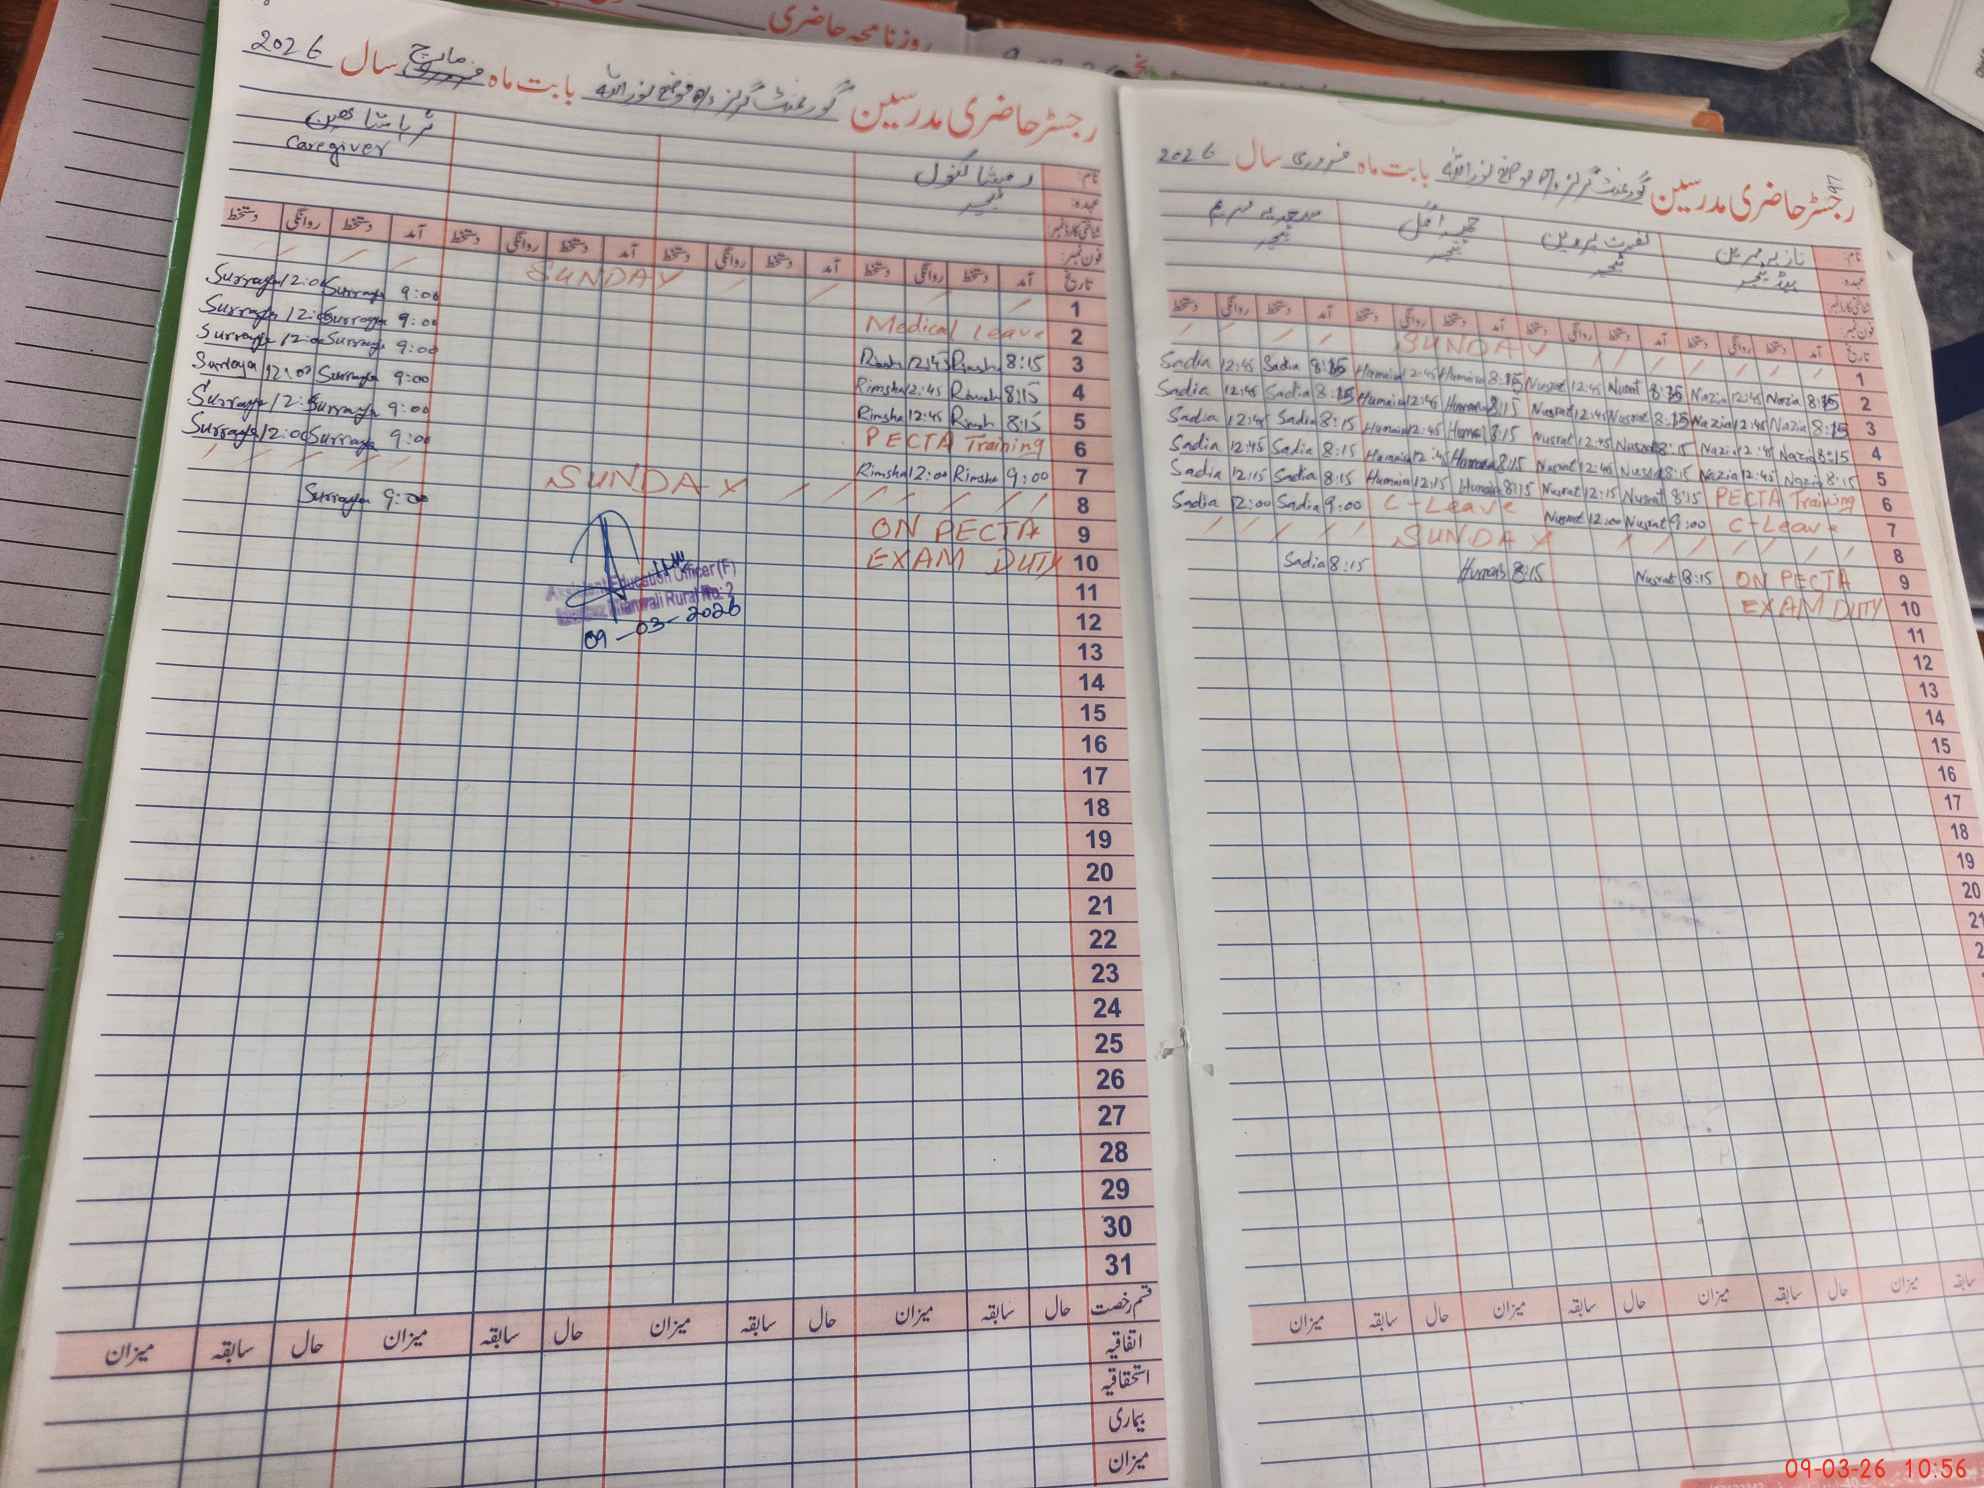 روزنامچہ حاضری
رجسٹر حاضری مدرسین گورنمنٹ گرلز بابت ماہ مارچ سال 2026
نام: رمشا کنول ثریا شاہین
عہدہ: ٹیچر Caregiver
شناختی کارڈ نمبر:
فون نمبر:
تاریخ آمد دستخط روانگی دستخط آمد دستخط روانگی دستخط آمد دستخط روانگی دستخط آمد دستخط روانگی دستخط
1 SUNDAY
2 Medical Leave Surraya 12:00 Surraya 9:00
3 Rimsha 12:45 Rimsha 8:15 Surraya 12:00 Surraya 9:00
4 Rimsha 12:45 Rimsha 8:15 Surraya 12:00 Surraya 9:00
5 Rimsha 12:45 Rimsha 8:15 Surraya 12:00 Surraya 9:00
6 PECTA Training Surraya 12:00 Surraya 9:00
7 Rimsha 12:00 Rimsha 9:00 Surraya 12:00 Surraya 9:00
8 SUNDAY
9 ON PECTA Surraya 9:00
10 EXAM DUTY
Assistant Education Officer (F)
Mianwali Rural No. 2
09-03-2026
11
12
13
14
15
16
17
18
19
20
21
22
23
24
25
26
27
28
29
30
31
قسم رخصت حال سابقہ میزان حال سابقہ میزان حال سابقہ میزان حال سابقہ میزان
اتفاقیہ
استحقاقیہ
بیماری
میزان
رجسٹر حاضری مدرسین گورنمنٹ گرلز بابت ماہ فروری سال 2026
نام: نازیہ نصرت پروین
عہدہ: ہیڈ ٹیچر ٹیچر ٹیچر ٹیچر
شناختی کارڈ نمبر:
فون نمبر:
تاریخ آمد دستخط روانگی دستخط آمد دستخط روانگی دستخط آمد دستخط روانگی دستخط آمد دستخط روانگی دستخط
1 SUNDAY
2 Sadia 12:45 Sadia 8:15 Humaira 12:45 Humaira 8:15 Nusrat 12:45 Nusrat 8:15 Nazia 12:45 Nazia 8:15
3 Sadia 12:45 Sadia 8:15 Humaira 12:45 Humaira 8:15 Nusrat 12:45 Nusrat 8:15 Nazia 12:45 Nazia 8:15
4 Sadia 12:45 Sadia 8:15 Humaira 12:45 Humaira 8:15 Nusrat 12:45 Nusrat 8:15 Nazia 12:45 Nazia 8:15
5 Sadia 12:45 Sadia 8:15 Humaira 12:45 Humaira 8:15 Nusrat 12:45 Nusrat 8:15 Nazia 12:45 Nazia 8:15
6 Sadia 12:15 Sadia 8:15 Humaira 12:15 Humaira 8:15 Nusrat 12:15 Nusrat 8:15 PECTA Training
7 Sadia 12:00 Sadia 9:00 C-Leave Nusrat 12:00 Nusrat 9:00 C-Leave
8 SUNDAY
9 Sadia 8:15 Humaira 8:15 Nusrat 8:15 ON PECTA
10 EXAM DUTY
11
12
13
14
15
16
17
18
19
20
21
میزان سابقہ حال میزان سابقہ حال میزان سابقہ حال میزان سابقہ
09-03-26 10:56